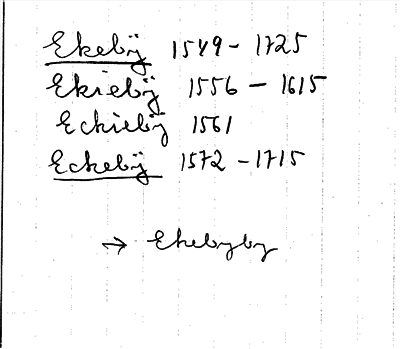 Ekebÿ 1549 - 1725
Ekiebÿ 1556 - 1615
Eckiebÿ 1561
Eckebÿ 1572 - 1715
→ Ekebyby